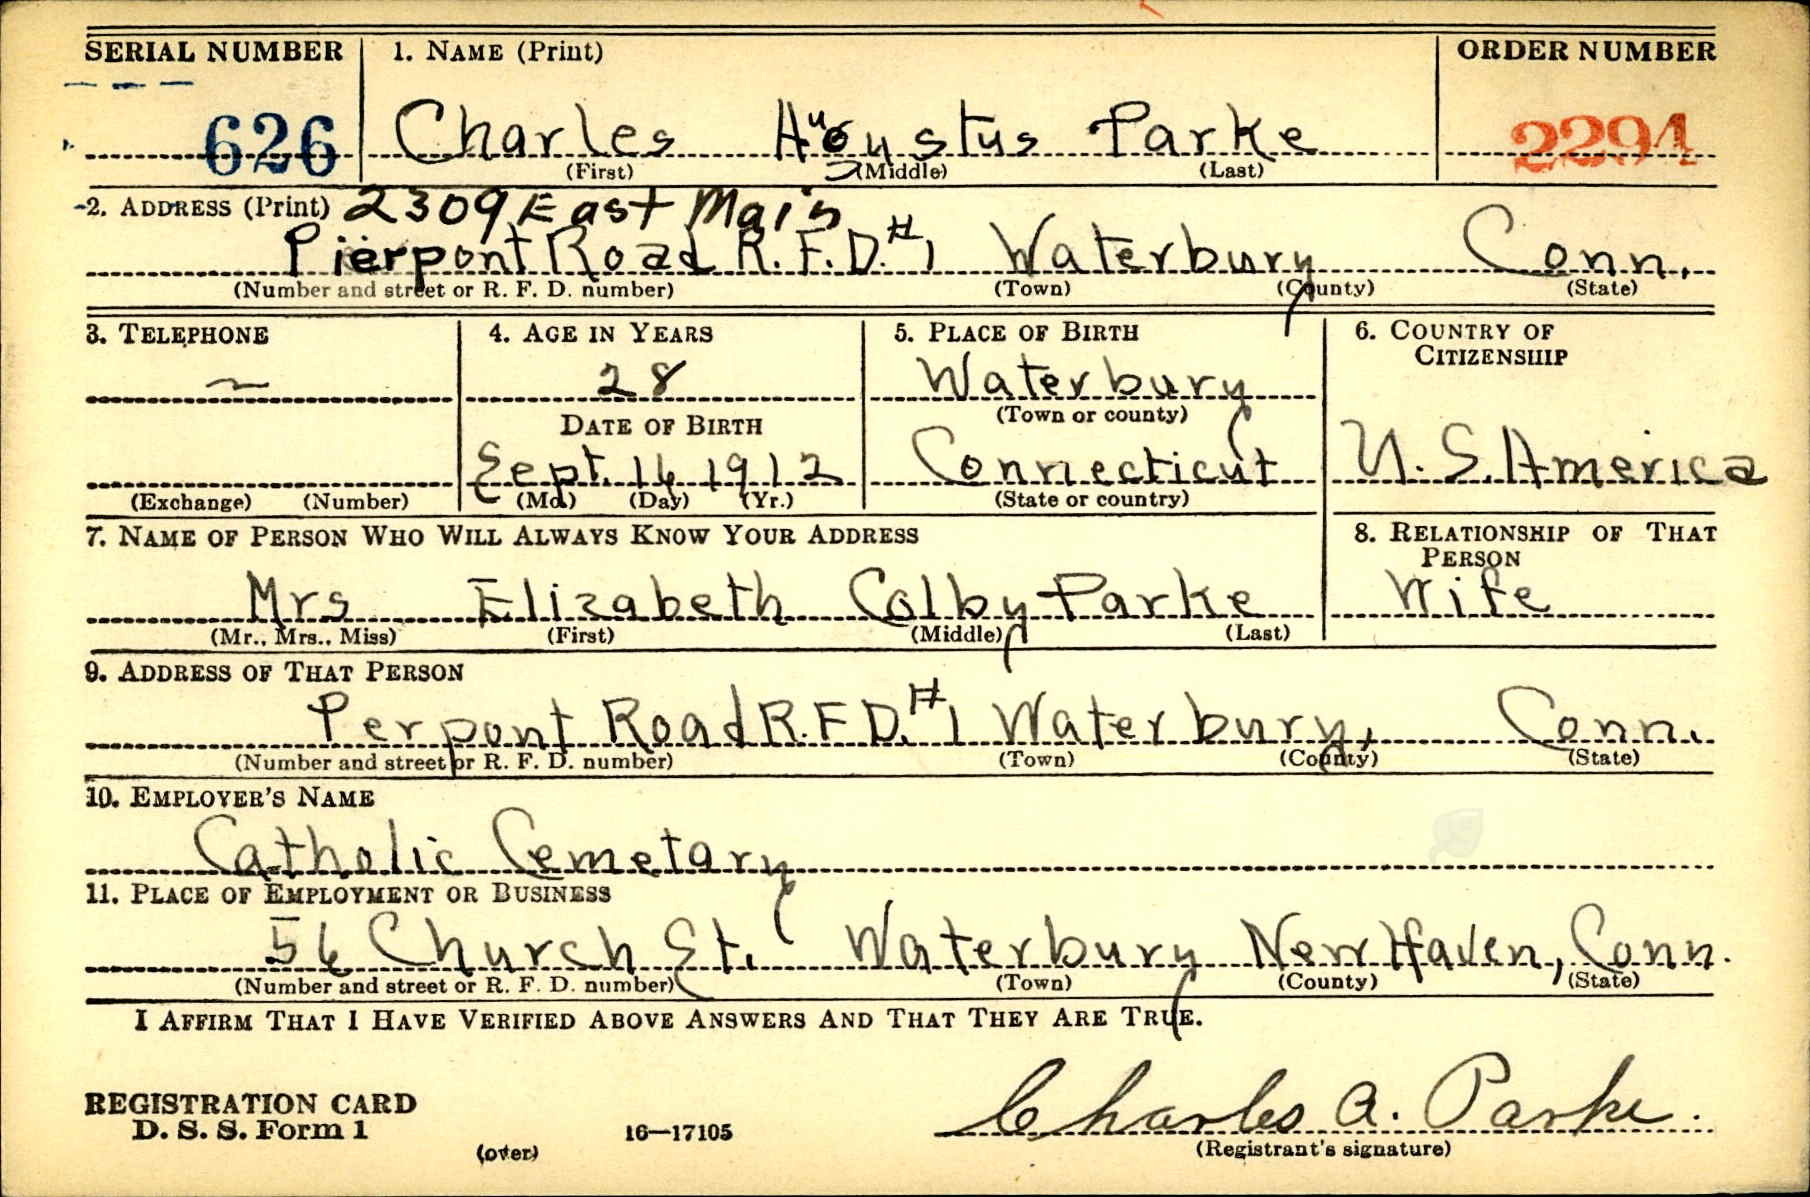 SERIAL NUMBER 1. NAME (Print) ORDER NUMBER
626 Charles Augustus Parke 2294
(First) (Middle) (Last)
2. ADDRESS (Print) 2309 East Main
Pierpont Road R.F.D. #1 Waterbury Conn.
(Number and street or R. F. D. number) (Town) (County) (State)
3. TELEPHONE 4. AGE IN YEARS 5. PLACE OF BIRTH 6. COUNTRY OF CITIZENSHIP
28 Waterbury
DATE OF BIRTH (Town or county)
Sept. 16 1912 Connecticut U.S. America
(Exchange) (Number) (Mo.) (Day) (Yr.) (State or country)
7. NAME OF PERSON WHO WILL ALWAYS KNOW YOUR ADDRESS 8. RELATIONSHIP OF THAT PERSON
Mrs Elizabeth Colby Parke Wife
(Mr., Mrs., Miss) (First) (Middle) (Last)
9. ADDRESS OF THAT PERSON
Perpont Road R.F.D. #1 Waterbury, Conn.
(Number and street or R. F. D. number) (Town) (County) (State)
10. EMPLOYER'S NAME
Catholic Cemetary
11. PLACE OF EMPLOYMENT OR BUSINESS
56 Church St. Waterbury New Haven, Conn.
(Number and street or R. F. D. number) (Town) (County) (State)
I AFFIRM THAT I HAVE VERIFIED ABOVE ANSWERS AND THAT THEY ARE TRUE.
REGISTRATION CARD
D. S. S. Form 1 16—17105 Charles A. Parke.
(over) (Registrant's signature)